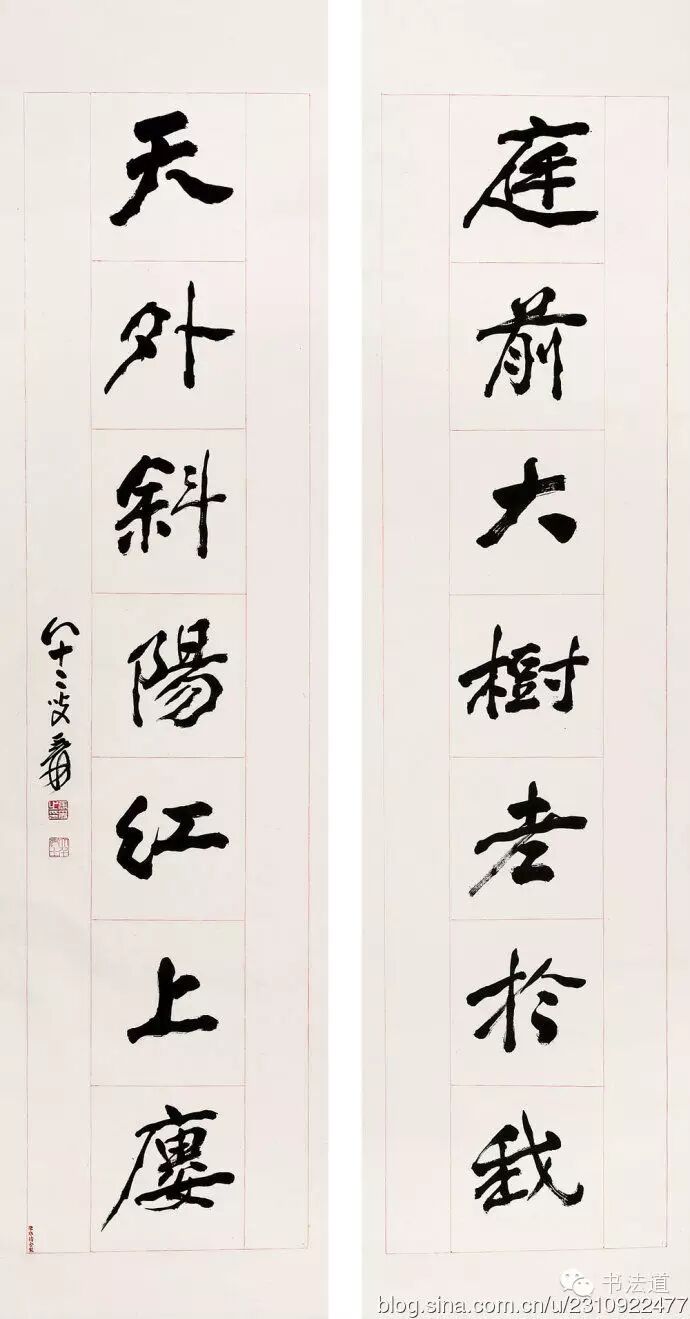 庭前大樹老於我
天外斜陽红上廔
八十二叟爰
书法道
blog.sina.com.cn/u/2310922477